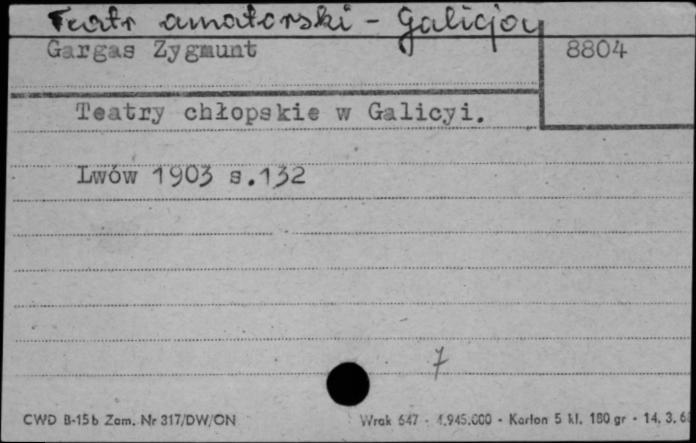 Teatr amatorski - Galicja
Gargas Zygmunt 8804
Teatry chłopskie w Galicyi.
Lwów 1903 s.132
7
CWD B-15b Zam. Nr 317/DW/ON Wrak 647 - 4.945.000 - Karton 5 kl. 180 gr - 14. 3. 6